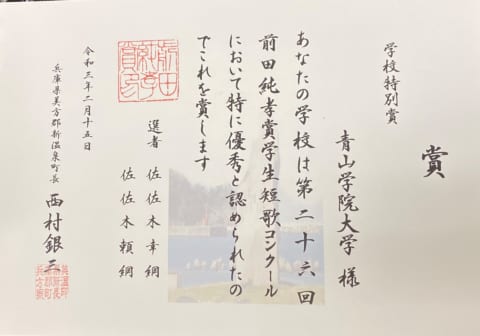 賞
学校特別賞
青山学院大学 様
あなたの学校は第二十六回
前田純孝賞学生短歌コンクール
において特に優秀と認められたの
でこれを賞します
前田
純孝
賞印
選者 佐佐木幸綱
佐佐木頼綱
令和三年二月十五日
兵庫県美方郡新温泉町長 西村銀三